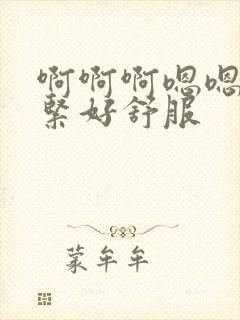 啊啊啊嗯嗯
紧好舒服
蒙牟牟